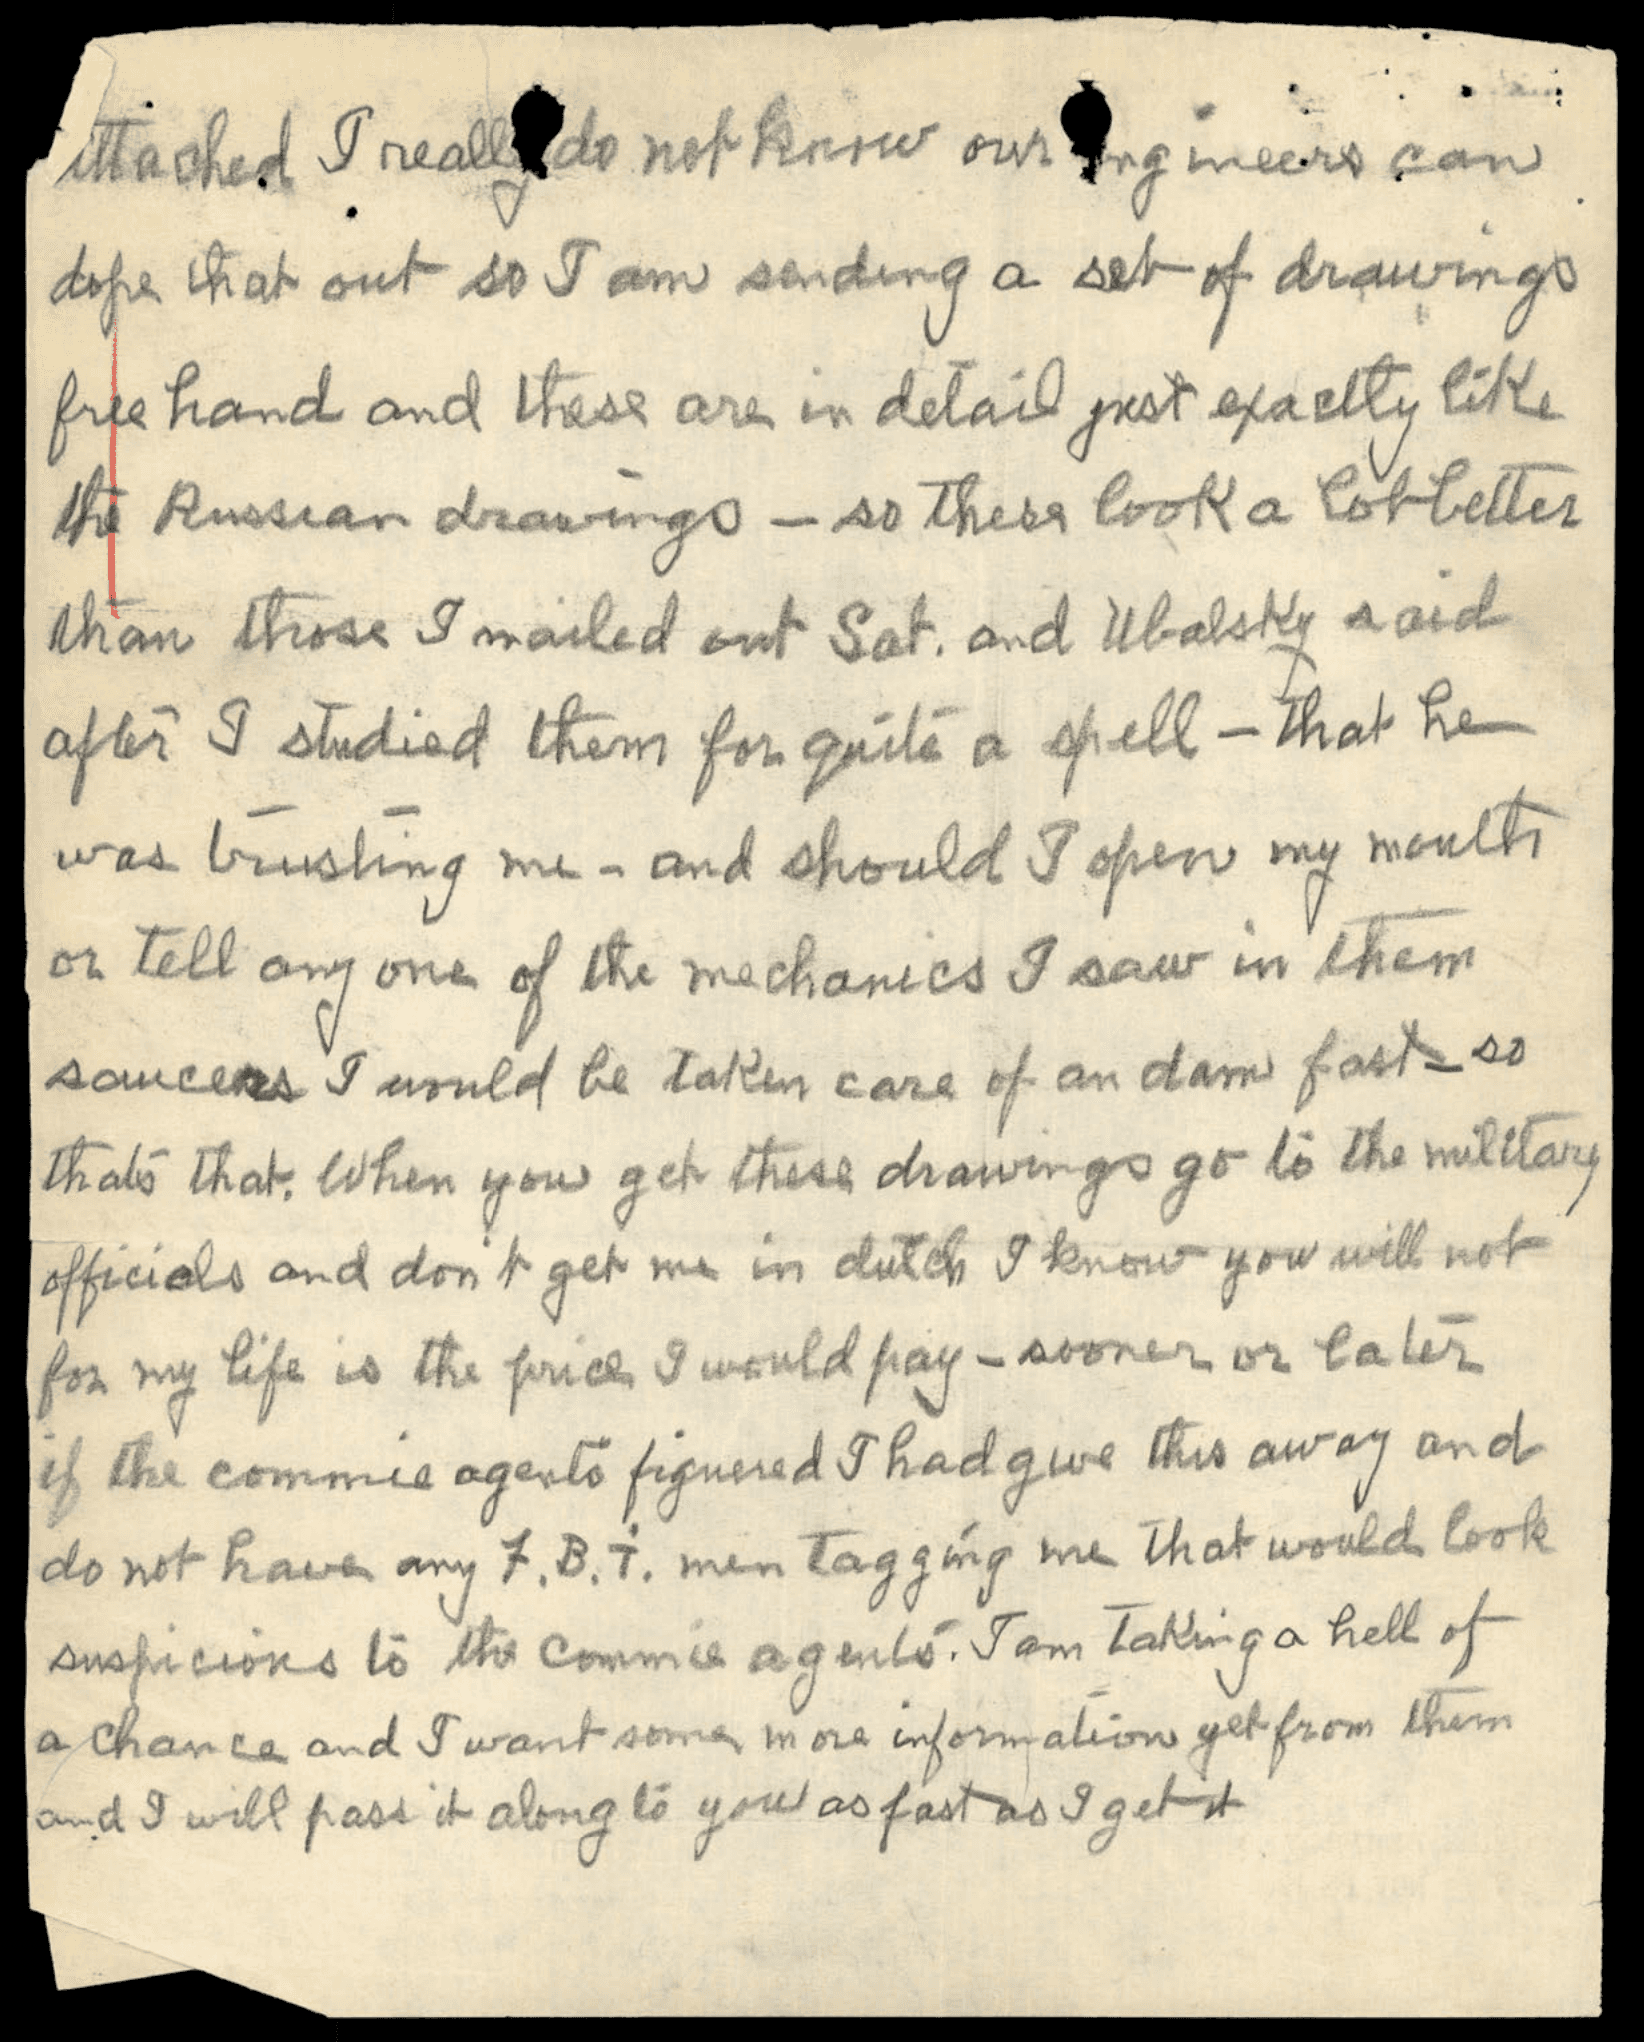 attached I really do not know our engineers can
dope that out so I am sending a set of drawings
free hand and these are in detail just exactly like
the Russian drawings – so these look a lot better
than those I mailed out Sat. and Ubalsky said
after I studied them for quite a spell – that he
was trusting me – and should I open my mouth
or tell any one of the mechanics I saw in them
saucers I would be taken care of an dam fast – so
thats that. When you get these drawings go to the military
officials and don't get me in dutch I know you will not
for my life is the price I would pay – sooner or later
if the commie agents figuered I had give this away and
do not have any F.B.I. men tagging me that would look
suspicions to the Commie agents. I am taking a hell of
a chance and I want some more information yet from them
and I will pass it along to you as fast as I get it